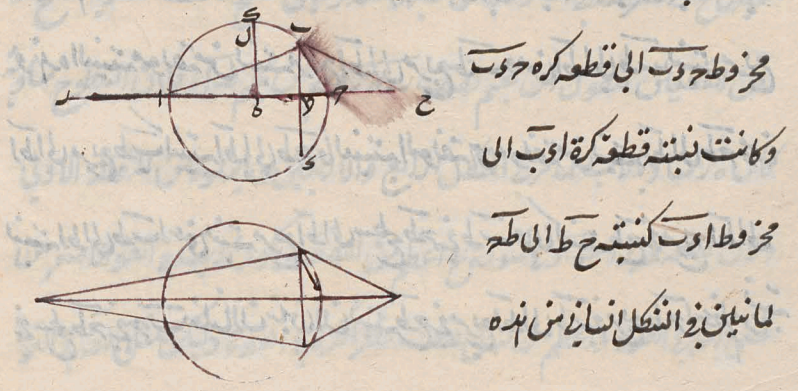 مخروط حدب الى قطعه كره حدب
وكانت نسبته قطعة كرة ادب الى
مخروط ادب كنسبته ح ط الى طه
لما تبين فى الشكل الثانى من انه